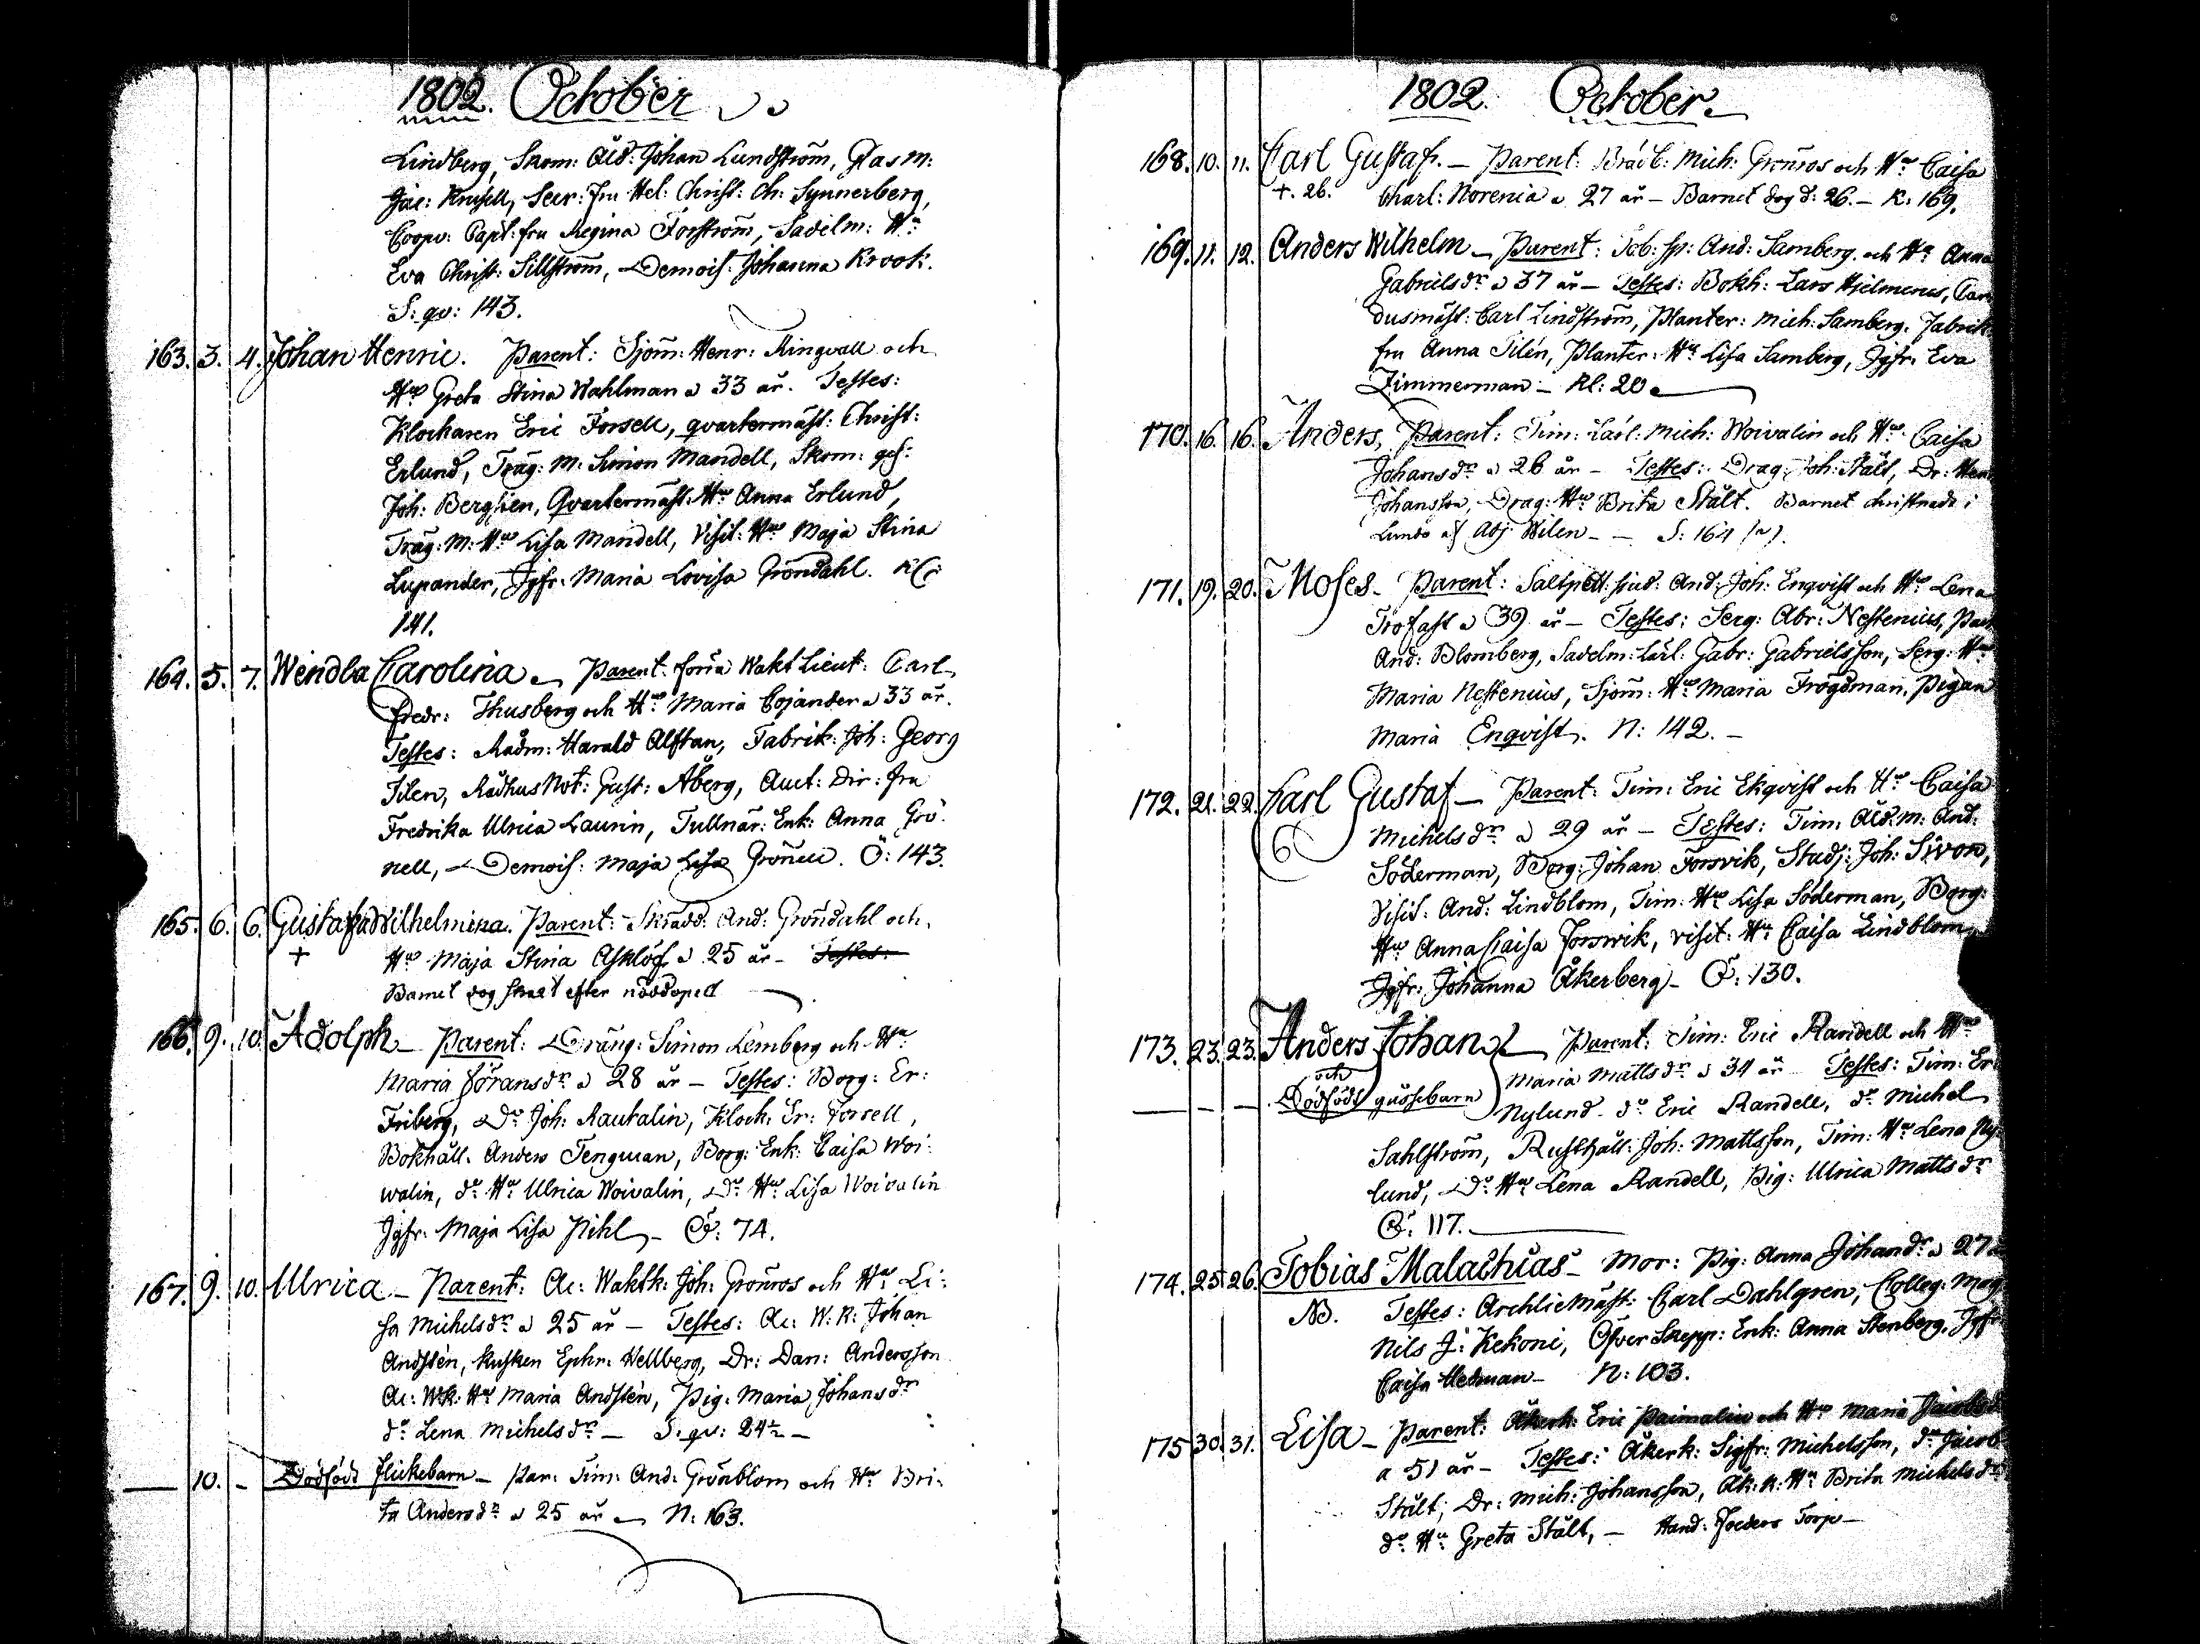 1802. October
Lindberg, Skom: Åld: Johan Lundström, Glas M:
Jac: Knusell, Secr: fru Hel: Christ: Ch: Synnerberg,
Coopv: Capt: fru Regina Forström, Sadelm: Hu
Eva Christ: Sillström, Demois: Johanna Krook.
S: qv: 143.
163. 3. 4. Johan Henric. Parent: Sjöm: Henr: Ringvall och
Hu Greta Stina Wahlman a 33 år. Testes:
Klockaren Eric Forsell, qvartermäst: Christ:
Erlund, Träg: M: Simon Mandell, Skom: ges:
Joh: Berghen, Qvartermäst: Hu Anna Erlund,
Träg: M: Hu Lisa Mandell, Visit: Hu Maja Stina
Lupander, Jgfr: Maria Lovisa Gröndahl. Kl:
141.
164. 5. 7. Wendla Carolina Parent: förra Wakt Lieut: Carl
Fredr: Thusberg och Hu Maria Cojander a 33 år.
Testes: Rådm: Harald Alftan, Fabrik: Joh: Georg
Tilen, Rådhus Not: Gust: Åberg, Auct: Dir: fru
Fredrika Ulrica Laurin, Tullnär: Enk: Anna Grö-
nell, Demois: Maja Lisa Grönell. Ö: 143.
165. 6. 6. Gustafva Wilhelmina. Parent: Skrädd: And: Gröndahl och
+ Hu Maja Stina Asklöf a 25 år - Testes:
Barnet dog strax efter nöddopet
166. 9. 10. Adolph - Parent: Dräng: Simon Lemberg och Hu
Maria Göransdr a 28 år - Testes: Borg: Er:
Friberg, Do Joh: Rautalin, Klock: Er: Forsell,
Bokhåll: Anders Tengman, Borg: Enk: Caisa Woi-
walin, do Hu Ulrica Woivalin, Do Hu Lisa Woivalin
Jgfr: Maja Lisa Pihl - Ö: 74.
167. 9. 10. Ulrica - Parent: Ac: Waktk: Joh: Grönros och Hu Li:
sa Michelsdr a 25 år - Testes: Ac: W: K: Johan
Andstén, Kusken Ephr: Hellberg, Dr: Dan: Andersson
Ac: WK: Hu Maria Andstén, Pig: Maria Johansdr
do Lena Michelsdr - S: qv: 24½ -
— 10. - Dödfödt flickebarn - Par: Tim: And: Grönblom och Hu Bri:
ta Andersdr a 25 år - N: 163.
1802. October
168. 10. 11. Carl Gustaf. - Parent: Brädb: Mich: Grönros och Hu Caisa
+. 26. Charl: Norenia a 27 år - Barnet dog d: 26. - K: 169.
169. 11. 12. Anders Wilhelm - Parent: Tob: sp: And: Samberg och Hu Anna
Gabrielsdr a 37 år - Testes: Bokh: Lars Hjelmerus, Car
dusmäst: Carl Lindström, Planter: Mich: Samberg, Fabrik
fru Anna Tilén, Planter: Hu Lisa Samberg, Jgfr: Eva
Zimmerman - Kl: 20
170. 16. 16. Anders, Parent: Tim: Lärl: Mich: Woivalin och Hu Caisa
Johansdr a 26 år - Testes: Drag: Joh: Stålt, Dr: Hen
Johansson, Drag: Hu Brita Stålt. Barnet christnadt i
Lundo af Adj: Wilen - - S: 164
171. 19. 20. Moses - Parent: Saltpett: siud: And: Joh: Enqvist och Hu Lena
Trofast a 39 år - Testes: Serg: Abr: Nestenius,
And: Blomberg, Sadelm: Lärl: Gabr: Gabrielsson, Serg: Hu
Maria Nestenius, Sjöm: Hu Maria Frögdman, Pigan
Maria Enqvist. N: 142. -
172. 21. 22. Carl Gustaf - Parent: Tim: Eric Ekqvist och Hu Caisa
Michelsdr a 29 år - Testes: Tim: Åld: M: And:
Söderman, Borg: Johan Forsvik, Stud: Joh: Sivon,
Visit: And: Lindblom, Tim: Hu Lisa Söderman, Borg:
Hu Anna Caisa Forswik, visit: Hu Caisa Lindblom,
Jgfr: Johanna Åkerberg - Ö: 130.
173. 23. 23. Anders Johan Parent: Tim: Eric Randell och Hu
och Maria Mattsdr a 34 år Testes: Tim: Er:
— - — Dödfödt gossebarn Nylund - do Eric Randell, do Michel
Sahlström, Rusthåll: Joh: Mattsson, Tim: Hu Lena Ny
lund, Do Hu Lena Randell, Pig: Ulrica Mattsdr
Ö: 117.
174. 25. 26. Tobias Malachias - Mor: Pig: Anna Johandr a 27
NB. Testes: Archliemäst: Carl Dahlgren, Colleg: Mag
Nils J: Kekoni, Öfver Skepp: Enk: Anna Stenberg, Jgfr
Caisa Hedman - N: 103.
175 30. 31. Lisa - Parent: Åkerk: Eric Paimalin och Hu Maria Jacobsd
a 51 år - Testes: Åkerk: Sigfr: Michelsson, do Jacob
Stålt, Dr: Mich: Johansson, Åk: K: Hu Brita Michelsdr
do Hu Greta Stålt, - Hand: